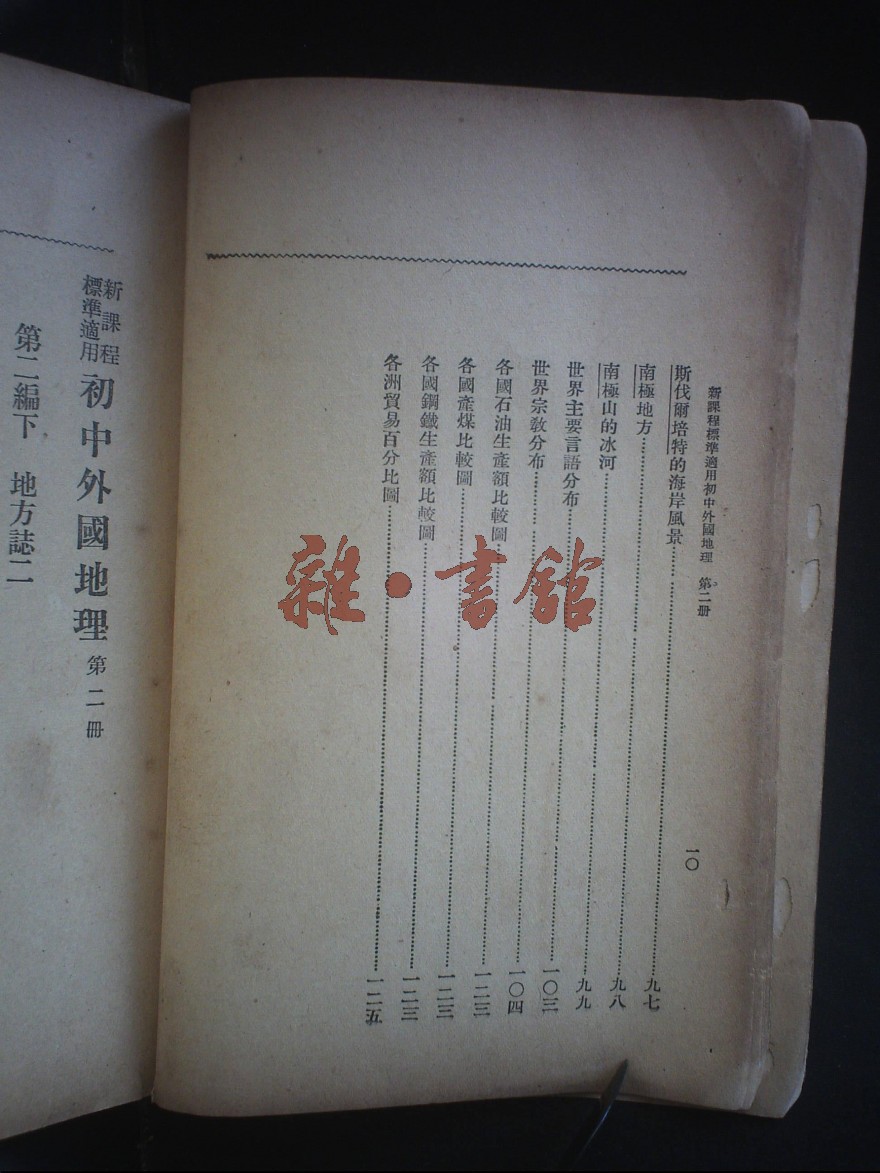 新課程標準適用初中外國地理 第二册 一〇
斯伐爾培特的海岸風景……九七
南極地方……九八
南極山的冰河……九九
世界主要言語分布……一〇三
世界宗敎分布……一〇四
各國石油生產額比較圖……一二三
各國產煤比較圖……一二三
各國鋼鐵生產額比較圖……一二三
各洲貿易百分比圖……一二五
新課程標準適用 初中外國地理 第二冊
第二編下 地方誌二
雜·書館